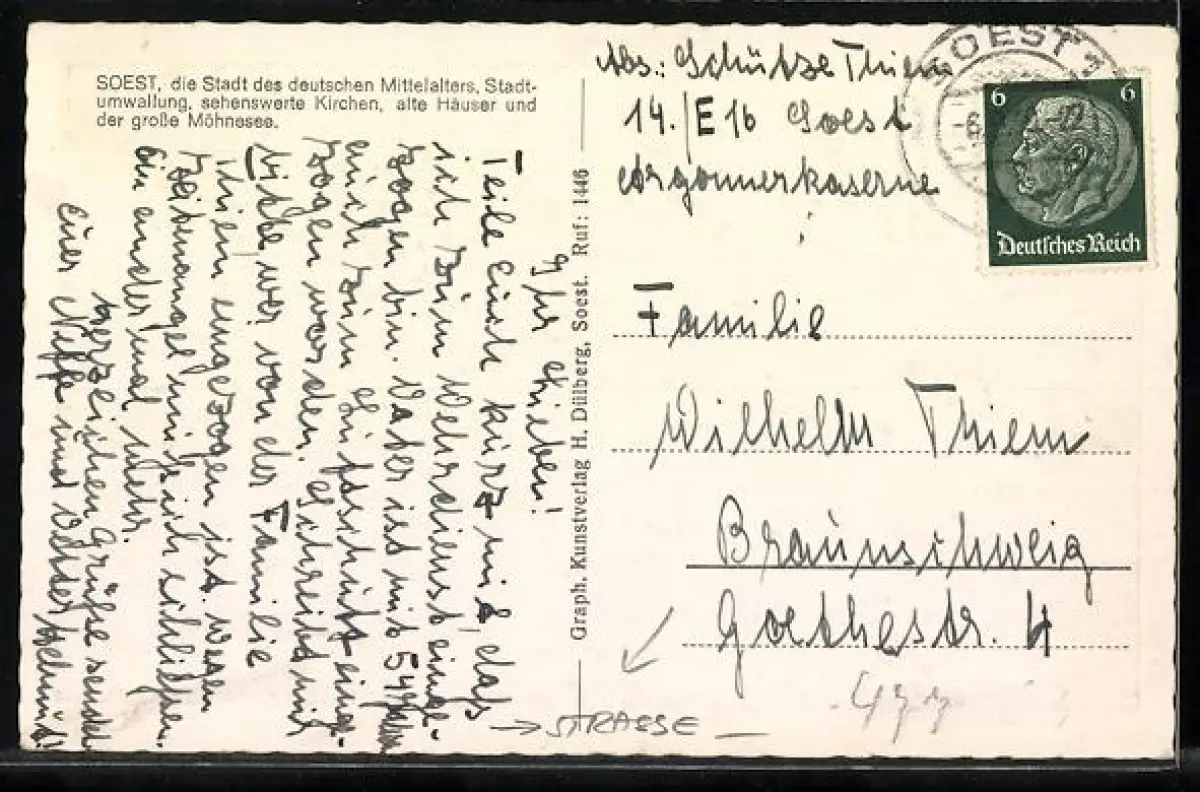 SOEST, die Stadt des deutschen Mittelalters, Stadt-
umwallung, sehenswerte Kirchen, alte Häuser und
der große Möhnesee.
Ihr Lieben!
Teile Euch kurz mit, dass
ich zum Wehrdienst einge-
zogen bin. Vater ist mit 54 Jahren
auch zum Luftschutz einge-
zogen worden. Schreibt mir
bitte, wer von der Familie
Thiem eingezogen ist. Wegen
Zeitmangel muß ich schließen.
Ein ander mal mehr.
Herzlichen Grüße sendet
Euer Neffe und Vetter Helmut!
Graph. Kunstverlag H. Dülberg, Soest. Ruf: 1446
Abs.: Schütze Thiem
14./E 16 Soest
Argonnerkaserne
SOEST
6 6
Deutsches Reich
Familie
Wilhelm Thiem
Braunschweig
Goethestr. 4
→ STRASSE